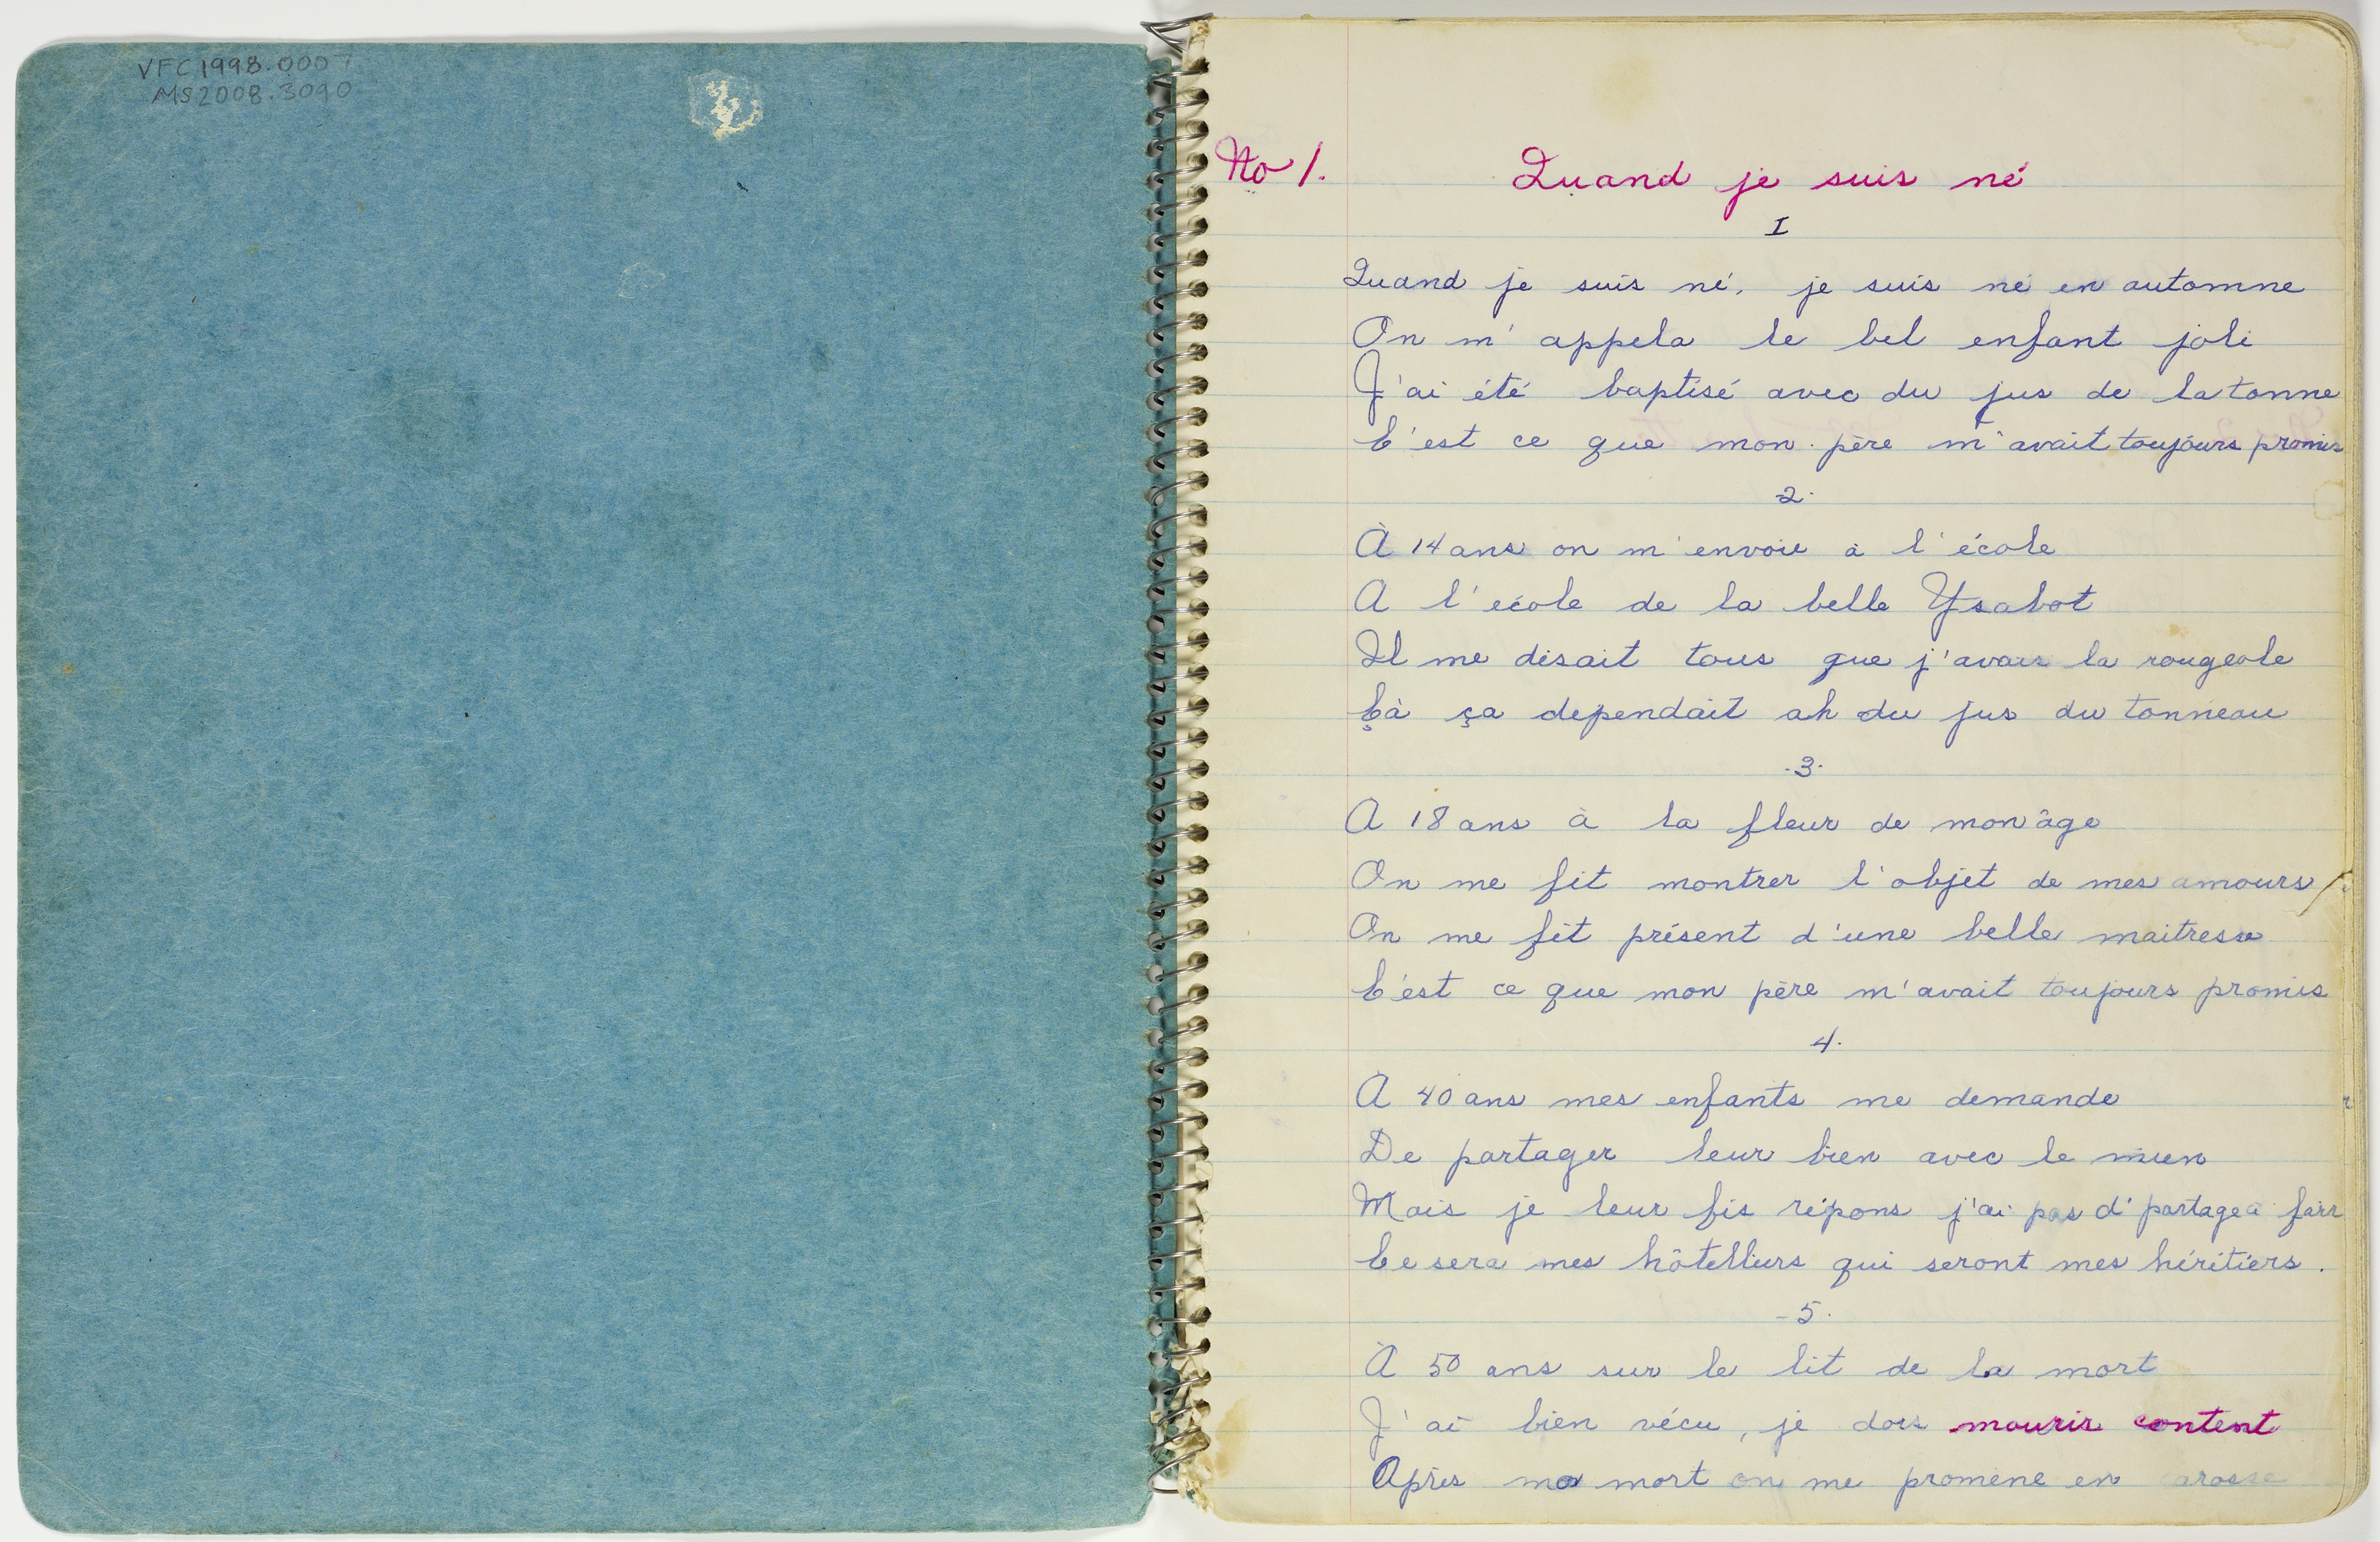 VFC1998.0007
MS2008.3090
No 1. Quand je suis né
I
Quand je suis né, je suis né en automne
On m'appela le bel enfant joli
J'ai été baptisé avec du jus de la tonne
C'est ce que mon père m'avait toujours promis
2.
À 14 ans on m'envoie à l'école
A l'école de la belle Ysabot
Il me disait tous que j'avais la rougeole
Çà ça dependait ah du jus du tonneau
.3.
A 18 ans à la fleur de mon âge
On me fit montrer l'objet de mes amours
On me fit présent d'une belle maitresse
C'est ce que mon père m'avait toujours promis
4.
À 40 ans mes enfants me demande
De partager leur bien avec le mien
Mais je leur fis répons j'ai pas d'partage à fair
Ce sera mes hôtelliers qui seront mes héritiers.
-5.
À 50 ans sur le lit de la mort
J'ai bien vécu, je dois mourir content
Après ma mort on me promène en carosse